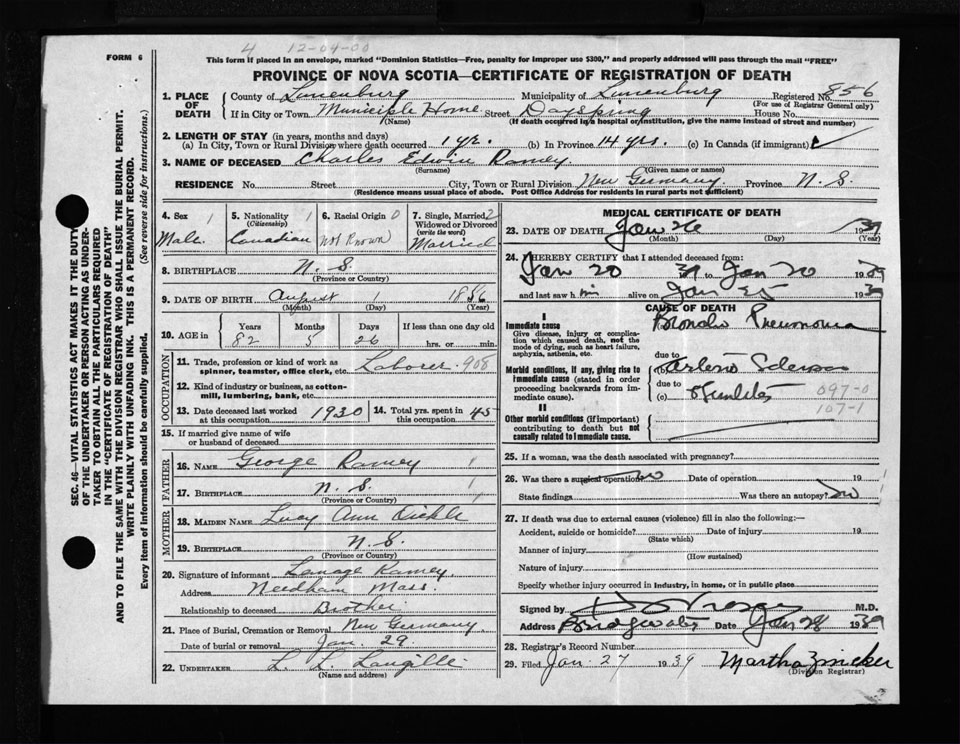 4 12-04-00
FORM 6
This form if placed in an envelope, marked "Dominion Statistics—Free, penalty for improper use $300," and properly addressed will pass through the mail "FREE"
PROVINCE OF NOVA SCOTIA—CERTIFICATE OF REGISTRATION OF DEATH
1. PLACE OF DEATH County of Lunenburg Municipality of Lunenburg Registered No. 856
(For use of Registrar General only)
If in City or Town Municiple Home Street Dayspring House No.
(Name) (If death occurred in a hospital or institution, give the name instead of street and number)
2. LENGTH OF STAY (in years, months and days)
(a) In City, Town or Rural Division where death occurred 1 yr. (b) In Province 14 yrs. (c) In Canada (if immigrant)
3. NAME OF DECEASED Charles Edwin Ramey
(Surname) (Given name or names)
RESIDENCE No. Street City, Town or Rural Division New Germany Province N. S.
(Residence means usual place of abode. Post Office Address for residents in rural parts not sufficient)
4. Sex 1 Male
5. Nationality 1 (Citizenship) Canadian
6. Racial Origin 0 Not Known
7. Single, Married, 2 Widowed or Divorced (write the word) Married
8. BIRTHPLACE N. S.
(Province or Country)
9. DATE OF BIRTH August 1 1856
(Month) (Day) (Year)
10. AGE in Years Months Days If less than one day old
82 5 26 hrs. or min.
OCCUPATION
11. Trade, profession or kind of work as spinner, teamster, office clerk, etc. Laborer 908
12. Kind of industry or business, as cotton-mill, lumbering, bank, etc.
13. Date deceased last worked at this occupation 1930
14. Total yrs. spent in this occupation 45
15. If married give name of wife or husband of deceased
FATHER
16. NAME George Ramey
17. BIRTHPLACE N. S.
(Province or Country)
MOTHER
18. MAIDEN NAME Lucy Ann
19. BIRTHPLACE N. S.
(Province or Country)
20. Signature of informant Ramey
Address Needham Mass.
Relationship to deceased Brother
21. Place of Burial, Cremation or Removal New Germany
Date of burial or removal Jan. 29.
22. UNDERTAKER L. L. Langille
(Name and address)
MEDICAL CERTIFICATE OF DEATH
23. DATE OF DEATH Jan 26 1939
(Month) (Day) (Year)
24. I HEREBY CERTIFY that I attended deceased from:
Jan 20 39 to Jan 20 1939
and last saw him alive on Jan 25 1939
CAUSE OF DEATH
I
Immediate cause
Give disease, injury or complication which caused death, not the mode of dying, such as heart failure, asphyxia, asthenia, etc.
Broncho Pneumonia
due to
Morbid conditions, if any, giving rise to immediate cause (stated in order proceeding backwards from immediate cause).
(b) Arterio Scleros
due to
(c) 097-0
107-1
II
Other morbid conditions (if important) contributing to death but not causally related to immediate cause.
25. If a woman, was the death associated with pregnancy?
26. Was there a surgical operation? no Date of operation 19
State findings Was there an autopsy? no
27. If death was due to external causes (violence) fill in also the following:—
Accident, suicide or homicide? Date of injury 19
(State which)
Manner of injury
(How sustained)
Nature of injury
Specify whether injury occurred in industry, in home, or in public place
Signed by M.D.
Address Bridgewater Date Jan 28 1939
28. Registrar's Record Number
29. Filed Jan. 27 1939 Martha Zinicker
(Division Registrar)
SEC. 46—VITAL STATISTICS ACT MAKES IT THE DUTY OF THE UNDERTAKER OR PERSON ACTING AS UNDERTAKER TO OBTAIN ALL THE PARTICULARS REQUIRED IN THE "CERTIFICATE OF REGISTRATION OF DEATH" AND TO FILE THE SAME WITH THE DIVISION REGISTRAR WHO SHALL ISSUE THE BURIAL PERMIT.
WRITE PLAINLY WITH UNFADING INK. THIS IS A PERMANENT RECORD.
Every item of information should be carefully supplied. (See reverse side for instructions.)